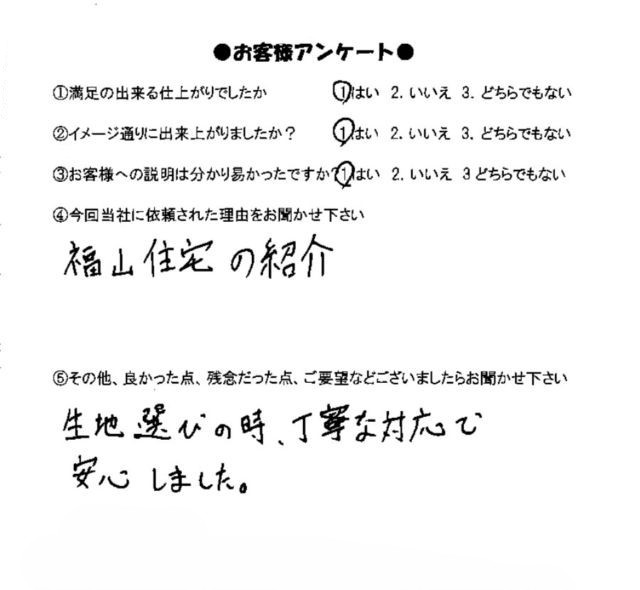 ●お客様アンケート●
①満足の出来る仕上がりでしたか 1はい 2. いいえ 3. どちらでもない
②イメージ通りに出来上がりましたか? 1はい 2. いいえ 3. どちらでもない
③お客様への説明は分かり易かったですか?1はい 2. いいえ 3 どちらでもない
④今回当社に依頼された理由をお聞かせ下さい
福山住宅の紹介
⑤その他、良かった点、残念だった点、ご要望などございましたらお聞かせ下さい
生地選びの時、丁寧な対応で
安心しました。